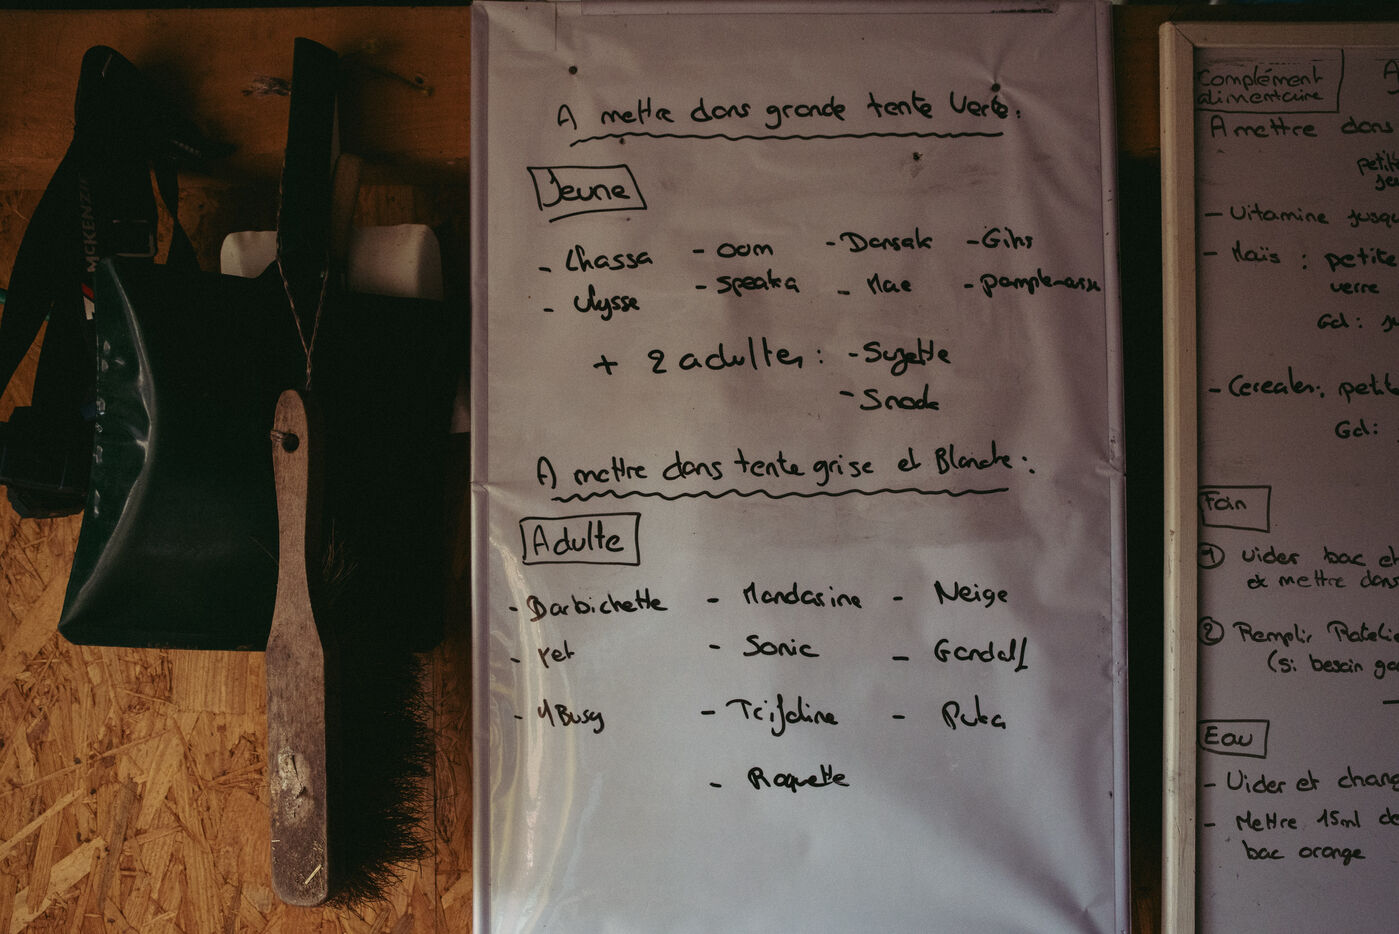 MCKENZI
A mettre dans grande tente Verte :
Jeune
- Lhassa - oom - Dorsak
- Ulysse - speaka - Mae
+ 2 adultes : - Suzette
- Snock
A mettre dans tente grise et Blanche :
Adulte
- Barbichette - Mandarine - Neige
- Yet - Sonic - Gandalf
- Trifoline - Puka
- Roquette
Complément
alimentaire
A mettre dans
petit
- Vitamine jusqu
- Maïs : petite
verre
Gd :
- Cereales : petite
Gd :
Foin
① Vider bac et
et mettre dans
② Remplir Ratelie
(si besoin
Eau
- Vider et chang
- Mettre 15ml de
bac orange